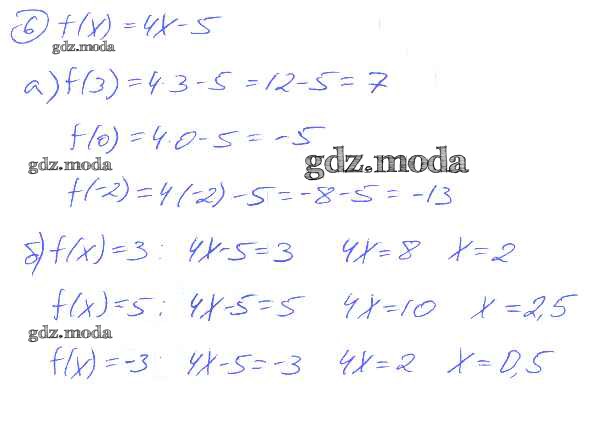 6) f(x) = 4x - 5
gdz.moda
а) f(3) = 4·3 - 5 = 12 - 5 = 7
f(0) = 4·0 - 5 = -5
gdz.moda
gdz.moda
f(-2) = 4(-2) - 5 = -8 - 5 = -13
б) f(x) = 3: 4x - 5 = 3 4x = 8 x = 2
f(x) = 5: 4x - 5 = 5 4x = 10 x = 2,5
gdz.moda
f(x) = -3: 4x - 5 = -3 4x = 2 x = 0,5